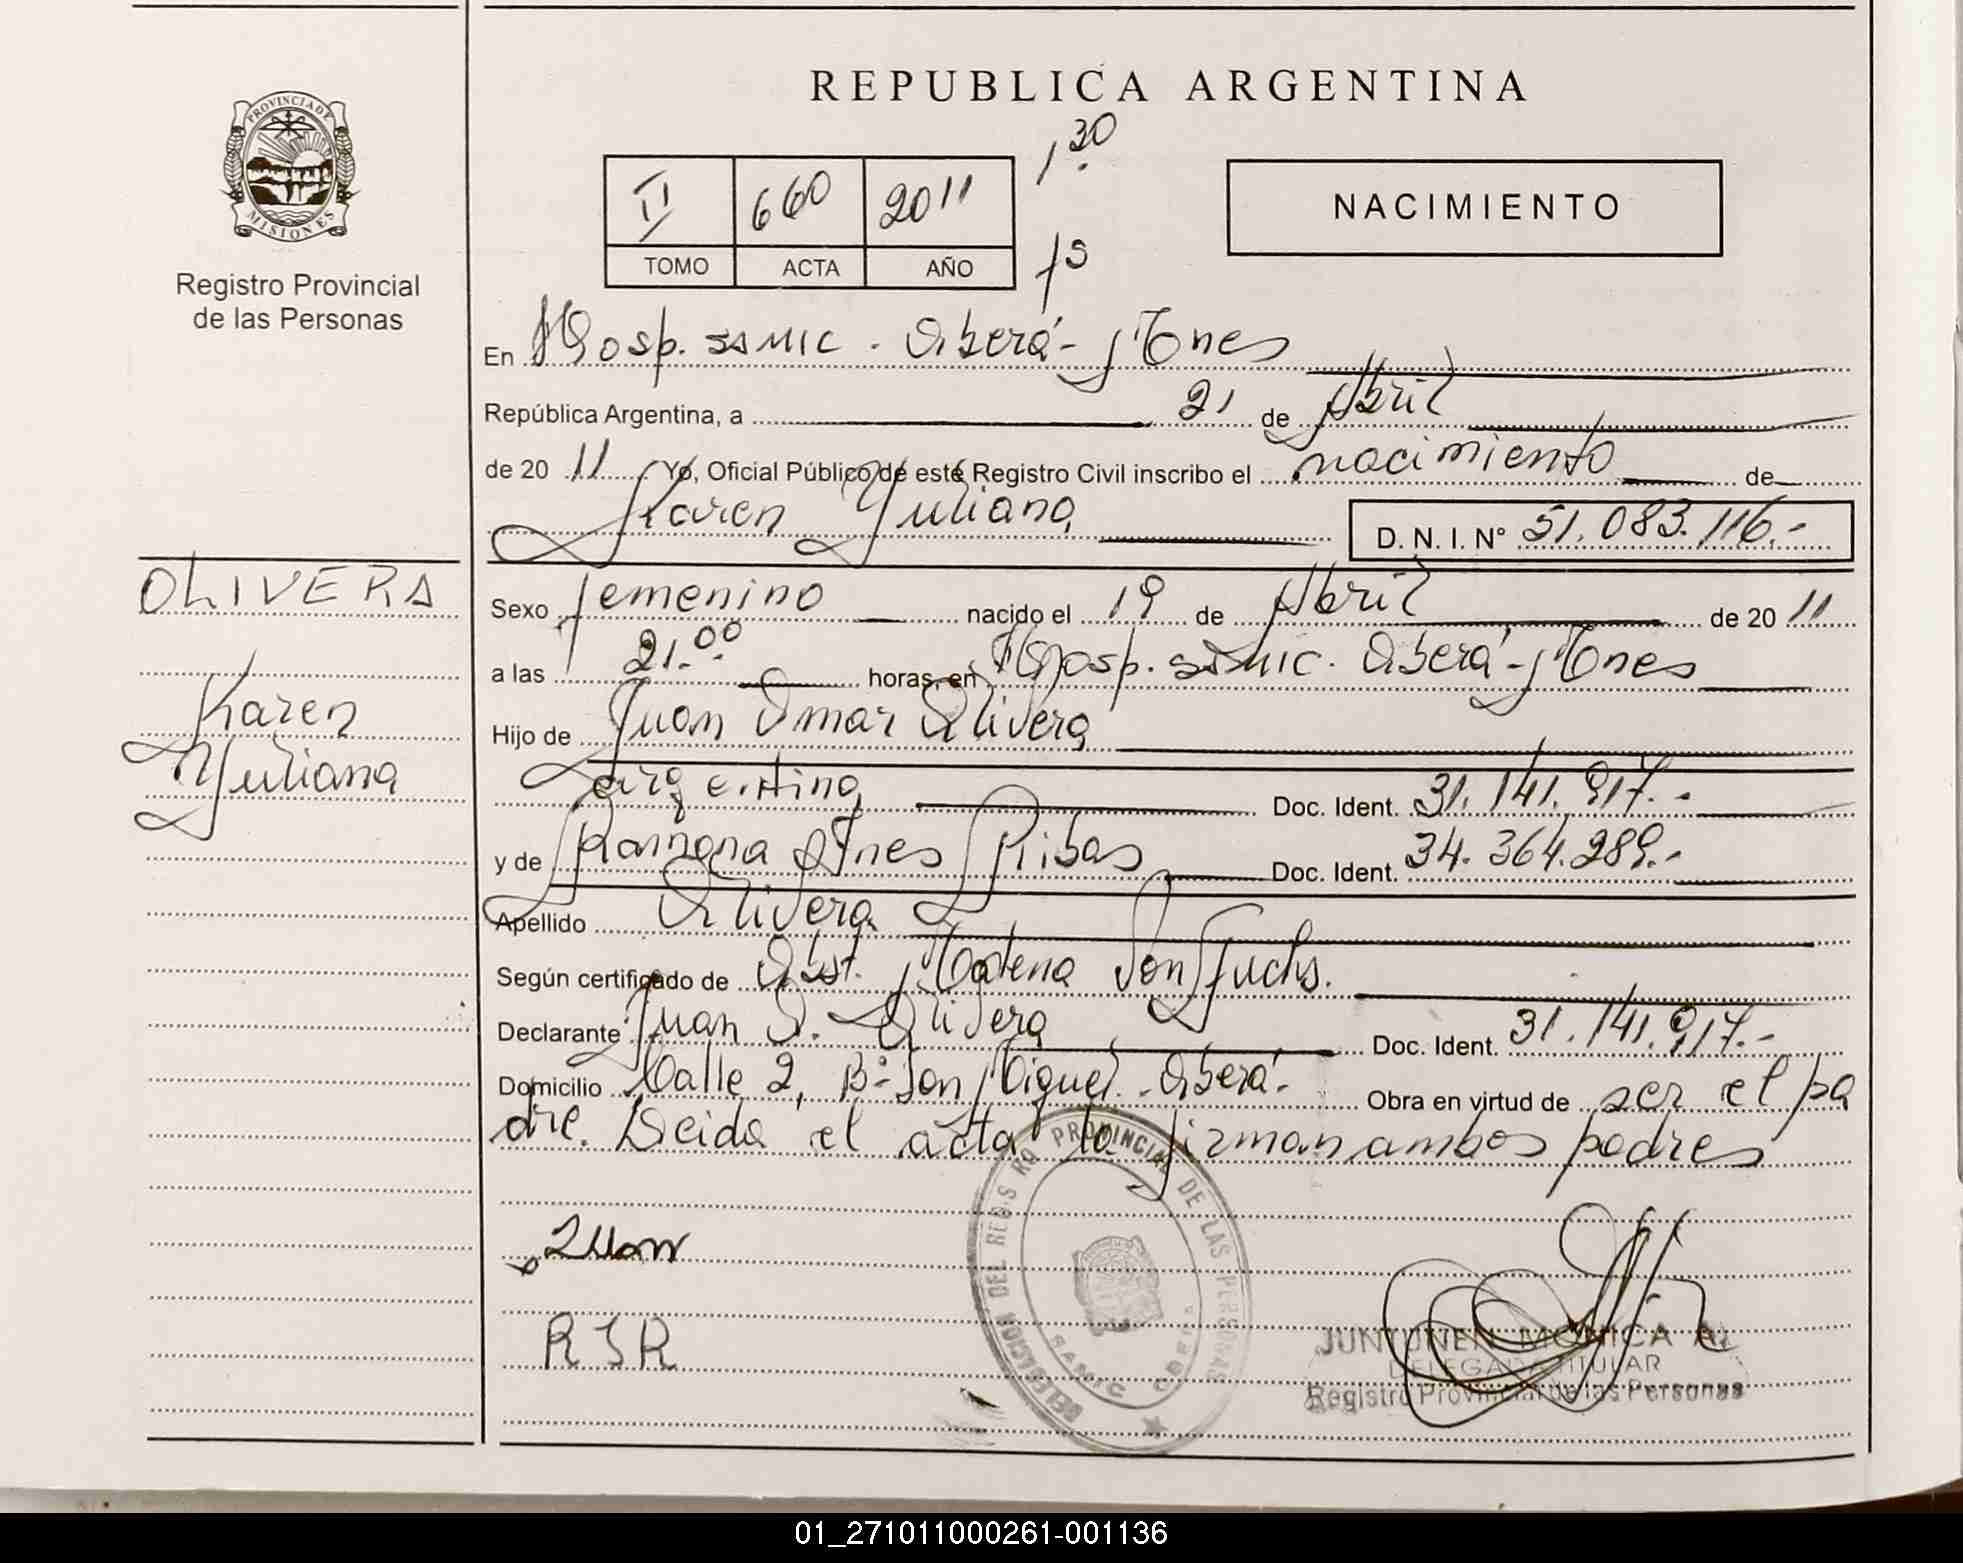 REPUBLICA ARGENTINA
PROVINCIA DE
MISIONES
Registro Provincial
de las Personas
II 660 2011
TOMO ACTA AÑO
1.30
fs
NACIMIENTO
En Hosp. SAMIC. Oberá - Mones
República Argentina, a 21 de Abril
de 20 11 Yo, Oficial Público de este Registro Civil inscribo el nacimiento de
Karen Yuliana D. N. I. Nº 51.083.116.-
OLIVERA
Karen
Yuliana
Sexo femenino nacido el 19 de Abril de 20 11
a las 21.00 horas, en Hosp. SAMIC. Oberá - Mones
Hijo de Juan Omar Olivera
argentina Doc. Ident. 31.141.917.-
y de Ramona Ines Ribas Doc. Ident. 34.364.289.-
Apellido Olivera
Según certificado de Obst. Von Fuchs.
Declarante Juan O. Olivera Doc. Ident. 31.141.917.-
Domicilio Calle 2, Bº San Miguel - Oberá - Obra en virtud de ser el pa
dre. Leida el acta la firman ambos padres
Juan
RIR
DELEGACION DEL REGISTRO PROVINCIAL DE LAS PERSONAS
SAMIC OBERA
JUNTUNEN MONICA A.
DELEGADA TITULAR
Registro Provincial de las Personas
01_271011000261-001136